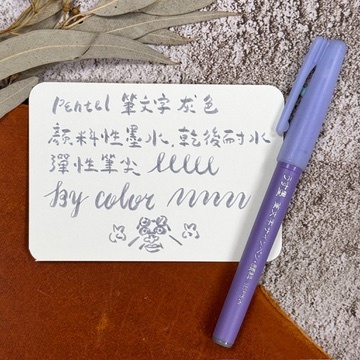 Pentel 筆文字 灰色
顏料性墨水.乾後耐水
彈性筆尖
by color